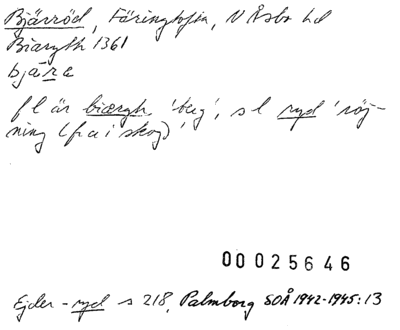 Bjärröd, Färingtofta, N Åsbo hd
Biaryth 1361
bjära
fl är biærgh 'berg', s l ryd 'röj-
ning (fra i skog)'
00025646
Ejder - ryd s 218, Palmborg SOÅ 1942-1945:13